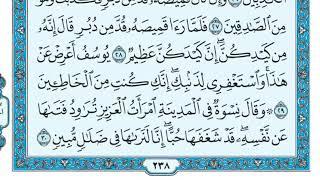 مِنَ ٱلصَّٰدِقِينَ ٢٧ فَلَمَّا رَءَا قَمِيصَهُۥ قُدَّ مِن دُبُرٍ قَالَ إِنَّهُۥ
مِن كَيْدِكُنَّ إِنَّ كَيْدَكُنَّ عَظِيمٌ ٢٨ يُوسُفُ أَعْرِضْ عَنْ
هَٰذَا وَٱسْتَغْفِرِى لِذَنۢبِكِ إِنَّكِ كُنتِ مِنَ ٱلْخَاطِـِٔينَ
٢٩ وَقَالَ نِسْوَةٌ فِى ٱلْمَدِينَةِ ٱمْرَأَتُ ٱلْعَزِيزِ تُرَٰوِدُ فَتَىٰهَا
عَن نَّفْسِهِۦ قَدْ شَغَفَهَا حُبًّا إِنَّا لَنَرَىٰهَا فِى ضَلَٰلٍ مُّبِينٍ ٣٠
٢٣٨